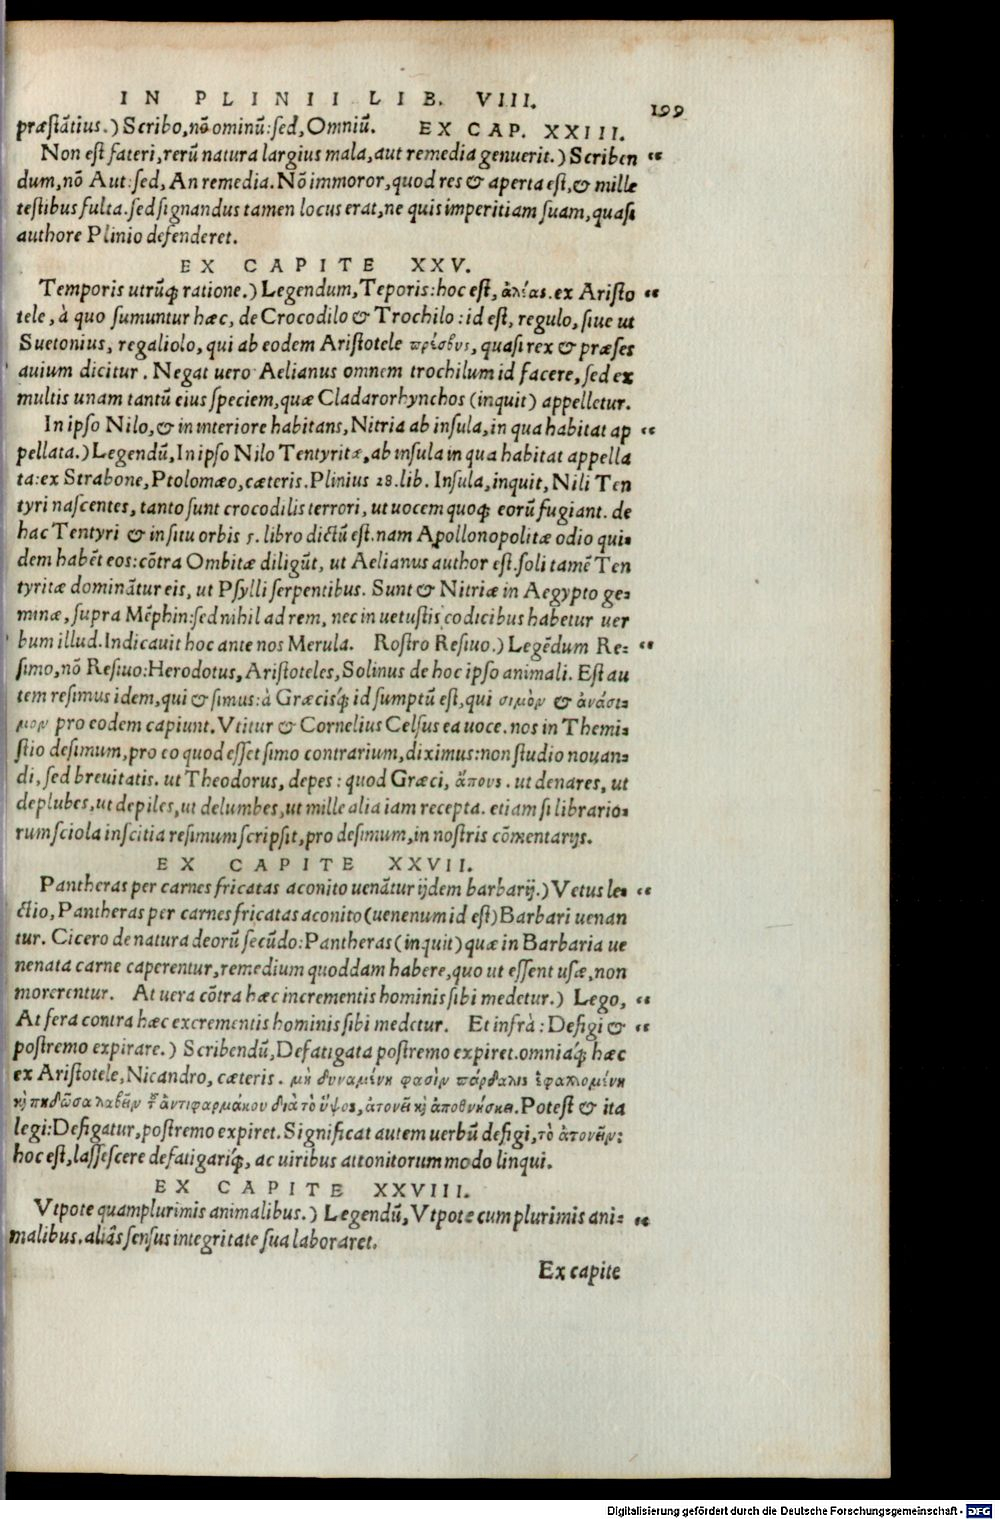 IN PLINII LIB. VIII. 199
præstātius.) Scribo, nō ominū: sed, Omniū. EX CAP. XXIII.
Non est fateri, rerū natura largius mala, aut remedia genuerit.) Scriben “
dum, nō Aut: sed, An remedia. Nō immoror, quod res & aperta est, & mille
testibus fulta. sed signandus tamen locus erat, ne quis imperitiam suam, quasi
authore Plinio defenderet.
EX CAPITE XXV.
Temporis utrūq; ratione.) Legendum, Teporis: hoc est, ἀλέας. ex Aristo “
tele, à quo sumuntur hæc, de Crocodilo & Trochilo: id est, regulo, siue ut
Suetonius, regaliolo, qui ab eodem Aristotele πρέσβυς, quasi rex & præses
auium dicitur. Negat uero Aelianus omnem trochilum id facere, sed ex
multis unam tantū eius speciem, quæ Cladarorhynchos (inquit) appelletur.
In ipso Nilo, & in interiore habitans, Nitria ab insula, in qua habitat ap “
pellata.) Legendū, In ipso Nilo Tentyritæ, ab insula in qua habitat appella
ta: ex Strabone, Ptolomæo, cæteris. Plinius 28. lib. Insula, inquit, Nili Ten
tyri nascentes, tanto sunt crocodilis terrori, ut uocem quoq; eorū fugiant. de
hac Tentyri & in situ orbis 5. libro dictū est. nam Apollonopolitæ odio qui=
dem habēt eos: cōtra Ombitæ diligūt, ut Aelianus author est. soli tamē Ten
tyritæ dominātur eis, ut Psylli serpentibus. Sunt & Nitriæ in Aegypto ge=
minæ, supra Mēphin: sed nihil ad rem, nec in uetustis codicibus habetur uer
bum illud. Indicauit hoc ante nos Merula. Rostro Resiuo.) Legēdum Re= “
simo, nō Resiuo: Herodotus, Aristoteles, Solinus de hoc ipso animali. Est au
tem resimus idem, qui & simus: à Græcisq́; id sumptū est, qui σιμὸν & ἀνάσι=
μον pro eodem capiunt. Vtitur & Cornelius Celsus ea uoce. nos in Themi=
stio desimum, pro eo quod esset simo contrarium, diximus: non studio nouan=
di, sed breuitatis. ut Theodorus, depes: quod Græci, ἄπους. ut denares, ut
deplubes, ut depiles, ut delumbes, ut mille alia iam recepta. etiam si librario=
rum sciola inscitia resimum scripsit, pro desimum, in nostris cōmentarijs.
EX CAPITE XXVII.
Pantheras per carnes fricatas aconito uenātur ijdem barbarij.) Vetus le= “
ctio, Pantheras per carnes fricatas aconito (uenenum id est) Barbari uenan
tur. Cicero de natura deorū secūdo: Pantheras (inquit) quæ in Barbaria ue
nenata carne caperentur, remedium quoddam habere, quo ut essent usæ, non
morerentur. At uera cōtra hæc incrementis hominis sibi medetur.) Lego, “
At fera contra hæc excrementis hominis sibi medetur. Et infrà: Defigi & “
postremo expirare.) Scribendū, Defatigata postremo expiret. omniaq́; hæc
ex Aristotele, Nicandro, cæteris. μὴ δυναμένη φασὶν πάρδαλις ἐφαλλομένη
κỳ πηδῶσα λαβεῖν τ̃ ἀντιφαρμάκου διὰ τὸ ὕψος, ἀτονεῖ κỳ ἀποθνήσκει. Potest & ita
legi: Defigatur, postremo expiret. Significat autem uerbū defigi, τὸ ἀτονεῖν:
hoc est, lassescere defatigariq́;, ac uiribus attonitorum modo linqui.
EX CAPITE XXVIII.
Vtpote quamplurimis animalibus.) Legendū, Vtpote cum plurimis ani= “
malibus. aliâs sensus integritate sua laboraret.
Ex capite
Digitalisierung gefördert durch die Deutsche Forschungsgemeinschaft - DFG